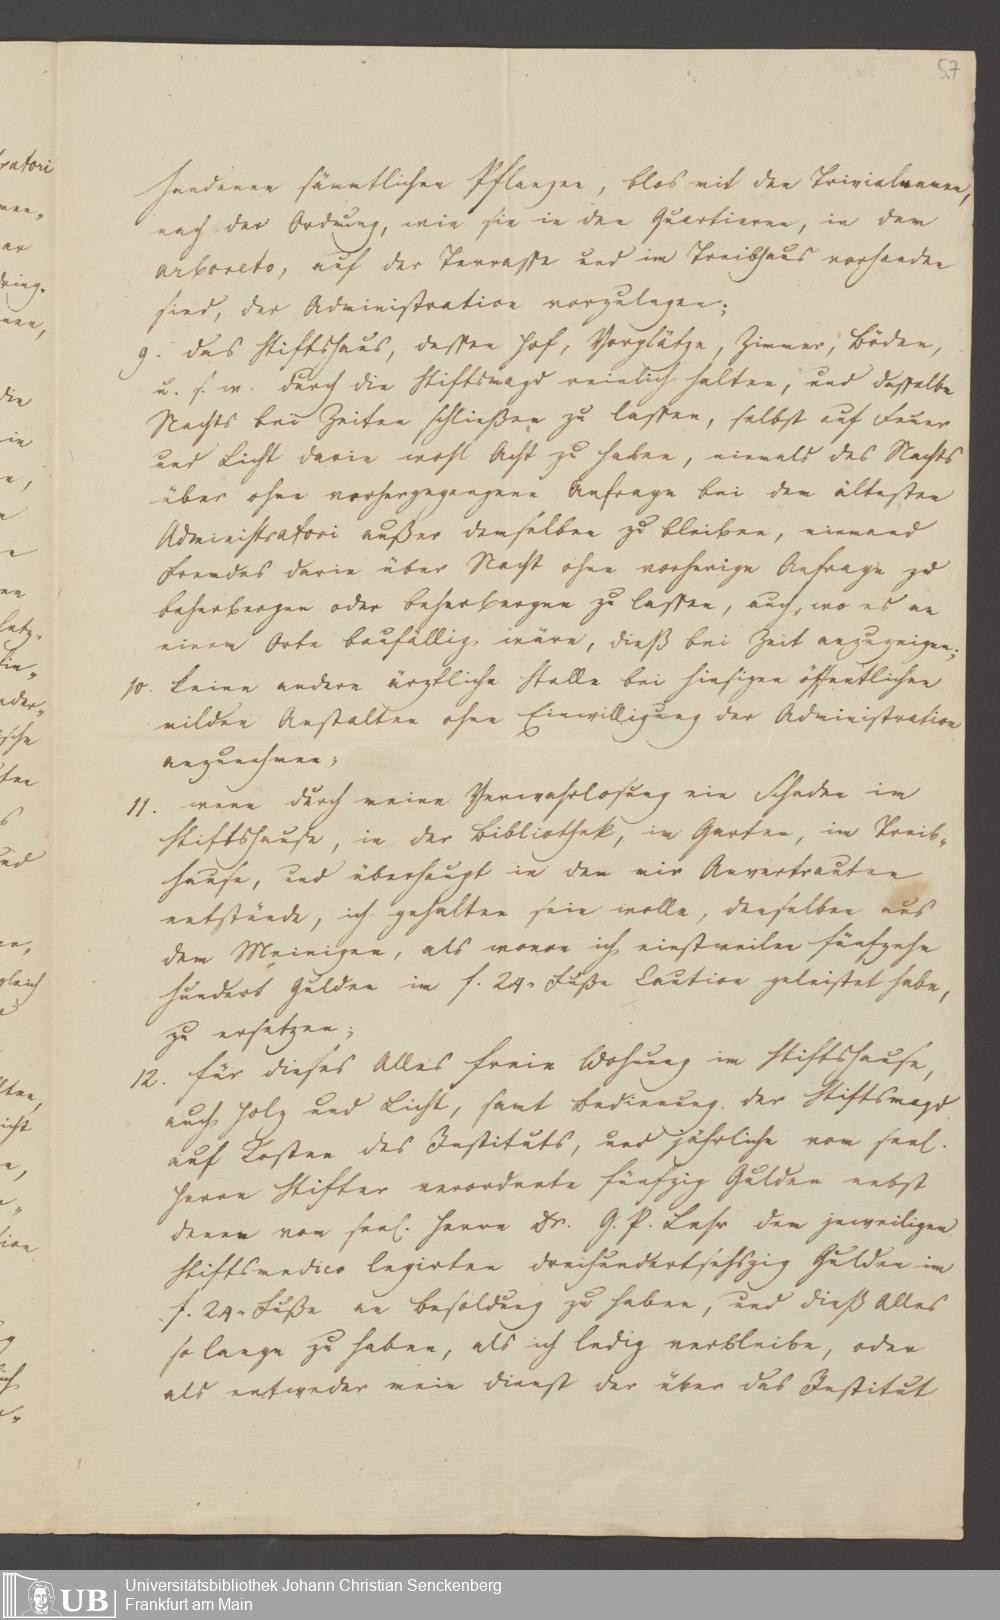 57
handenen sämmtlichen Pflanzen, blos mit den Trivialnamen,
nach der Ordnung, wie sie in den Quartieren, in dem
arboreto, auf der Terrasse und im Treibhaus vorhanden
sind, der Administration vorzulegen;
9. das Stiftshaus, dessen Hof, Vorplätze, Zimmer, Böden,
u. s. w. durch die Stiftsmagd reinlich halten, und dasselbe
Nachts bei Zeiten schließen zu lassen, selbst auf Feuer
und Licht darin wohl Acht zu haben, niemals des Nachts
über ohne vorhergegangene Anfrage bei dem ältesten
Administratori außer demselben zu bleiben, niemand
Fremdes darin über Nacht ohne vorherige Anfrage zu
beherbergen oder beherbergen zu lassen, auch, wo es an
einem Orte baufällig wäre, dieß bei Zeit anzuzeigen;
10. keine andere ärztliche Stelle bei hiesigen öffentlichen
milden Anstalten ohne Einwilligung der Administration
anzunehmen;
11. wenn durch meine Verwahrlosung ein Schaden im
Stiftshause, in der Bibliothek, im Garten, im Treib-
hause, und überhaupt in dem mir Anvertrauten
entstünde, ich gehalten sein wolle, denselben aus
dem Meinigen, als wovon ich einstweilen fünfzehn
hundert Gulden im f. 24-Fuße Caution geleistet habe,
zu ersetzen;
12. für dieses Alles freie Wohnung im Stiftshause,
auch Holz und Licht, samt Bedienung der Stiftsmagd
auf Kosten des Instituts, und jährliche vom seel.
Herrn Stifter verordnete fünfzig Gulden nebst
denen von seel. Herrn Dr. G. P. Lehr dem jeweiligen
Stiftsmedico legirten dreihundertsechszig Gulden im
f. 24-Fuße an Besoldung zu haben, und dieß Alles
so lange zu haben, als ich ledig verbleibe, oder
als entweder mein Dienst der über das Institut
UB
Universitätsbibliothek Johann Christian Senckenberg
Frankfurt am Main